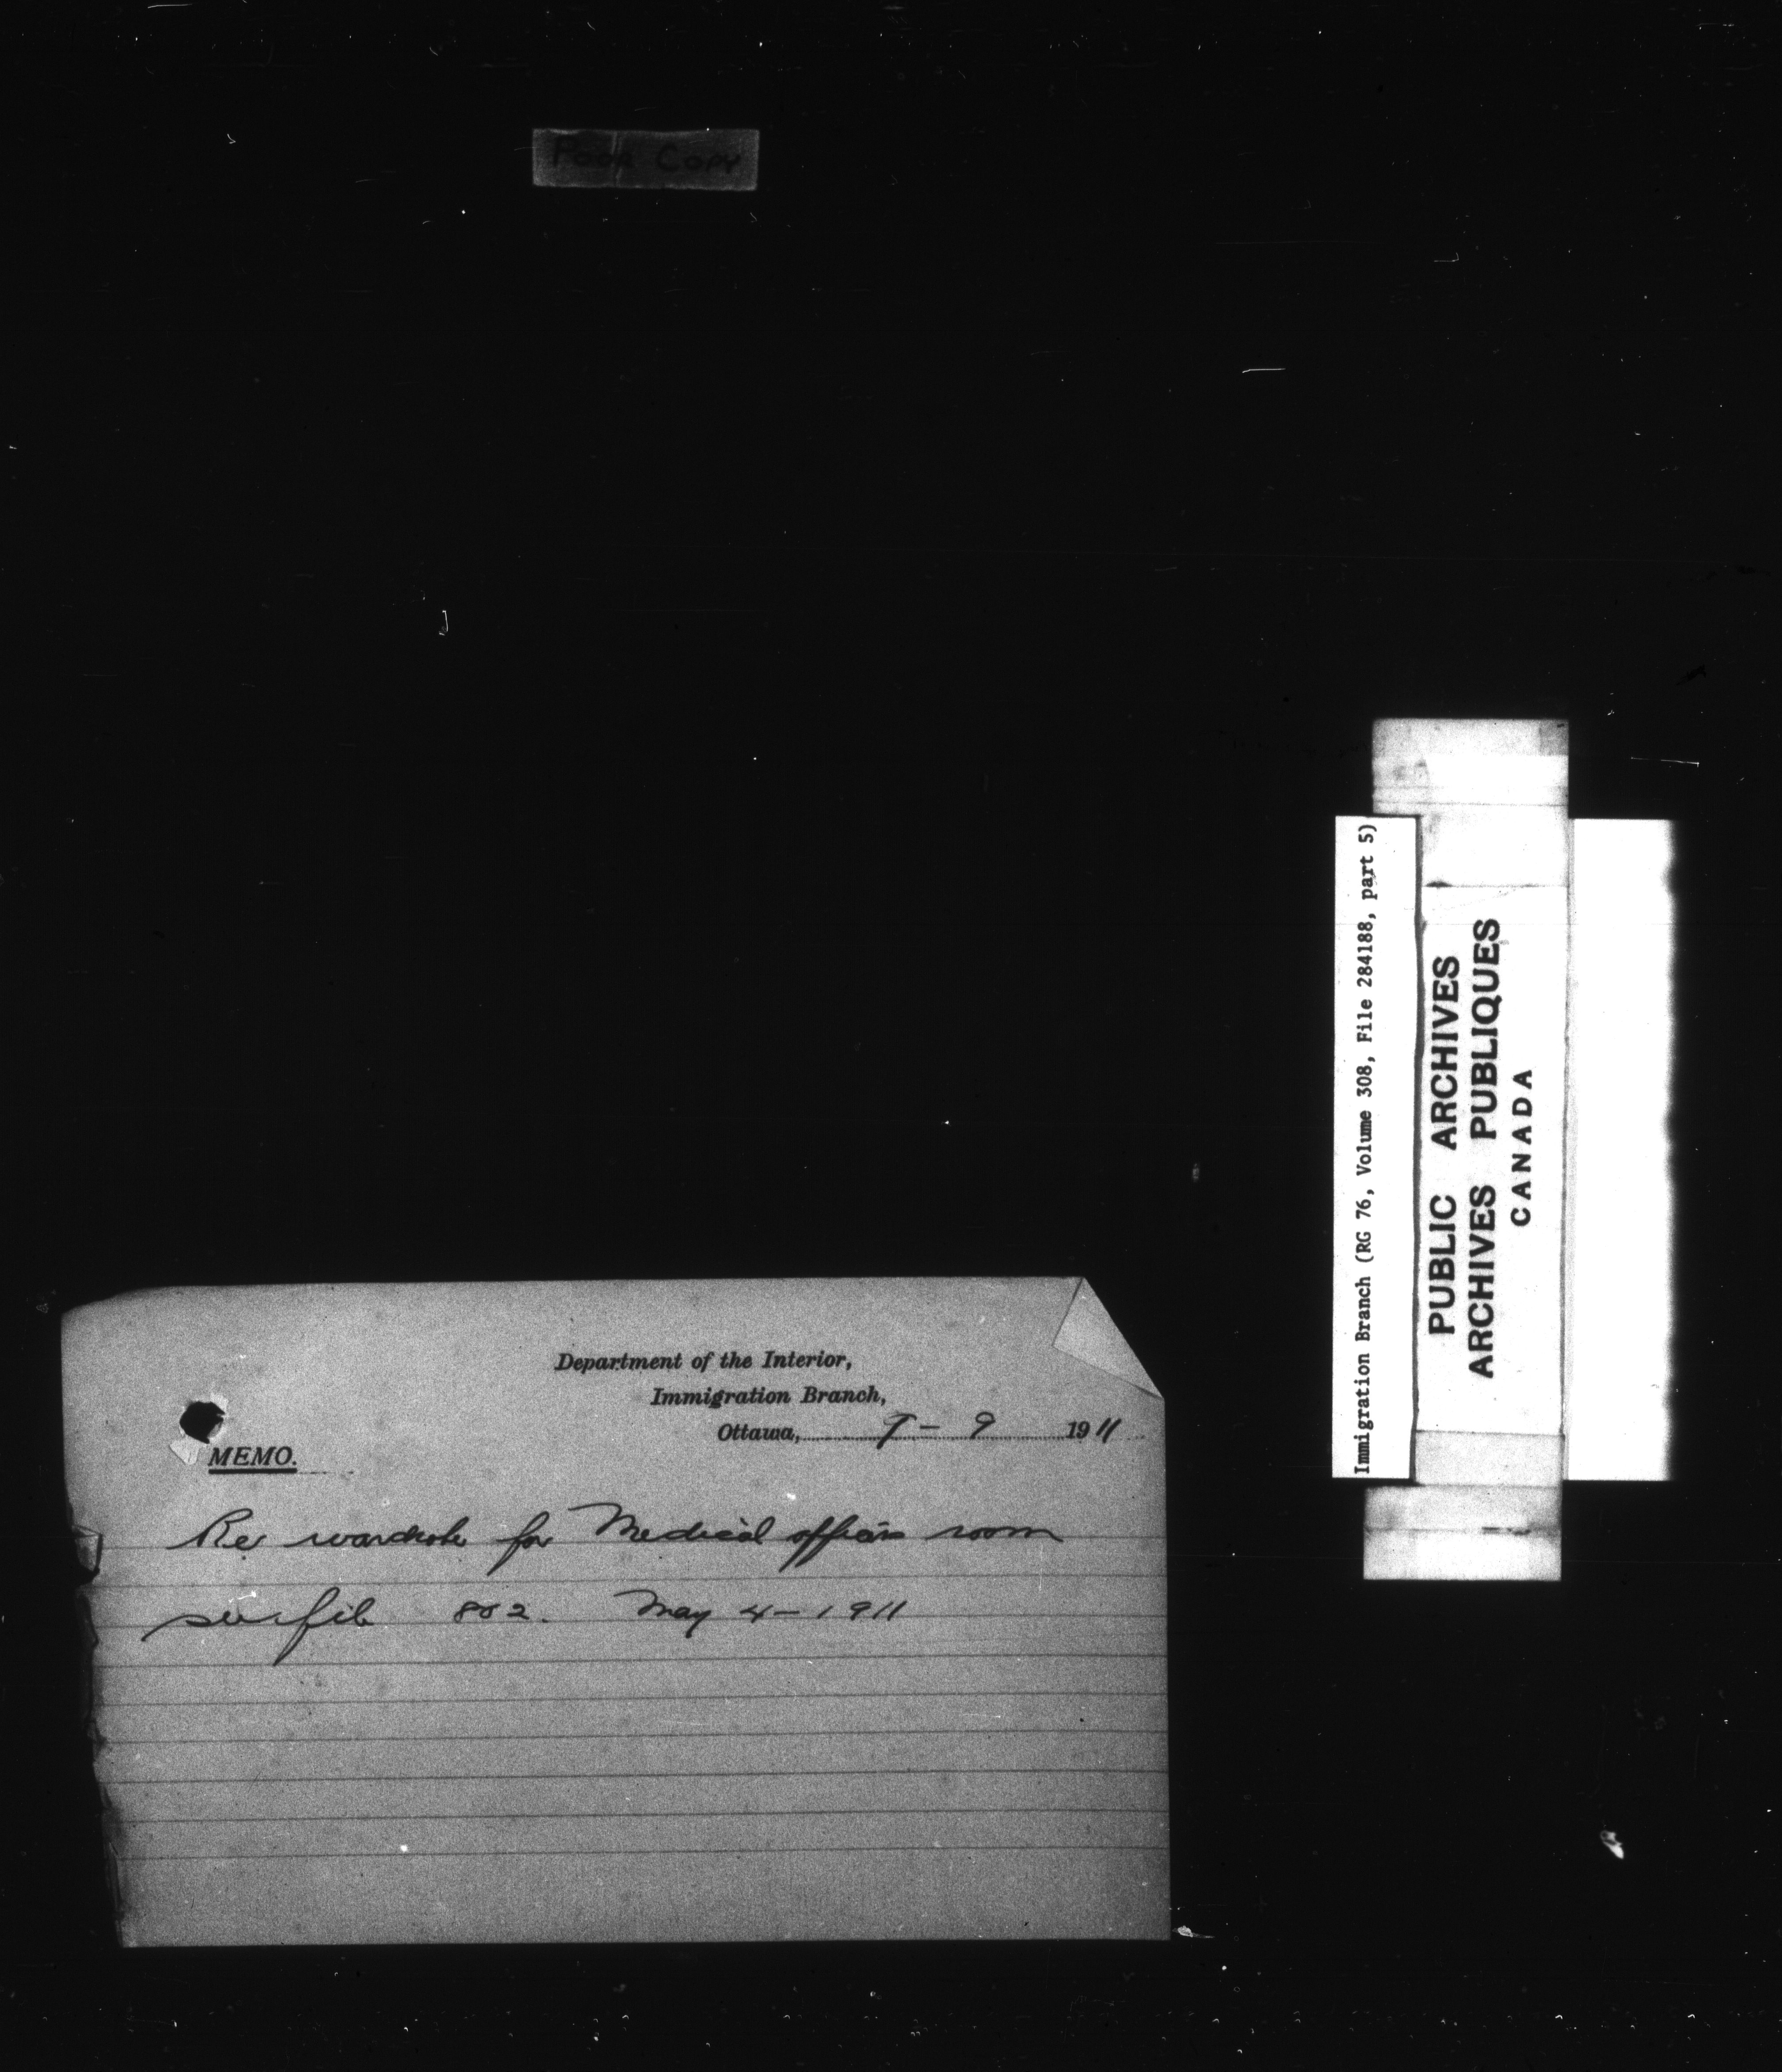 Poor Copy
Department of the Interior,
Immigration Branch,
Ottawa, 9 1911
MEMO.
Re wardrobe for Medical officers room
see file 802. May 4-1911
Immigration Branch (RG 76, Volume 308, File 284188, part 5)
PUBLIC ARCHIVES
ARCHIVES PUBLIQUES
CANADA